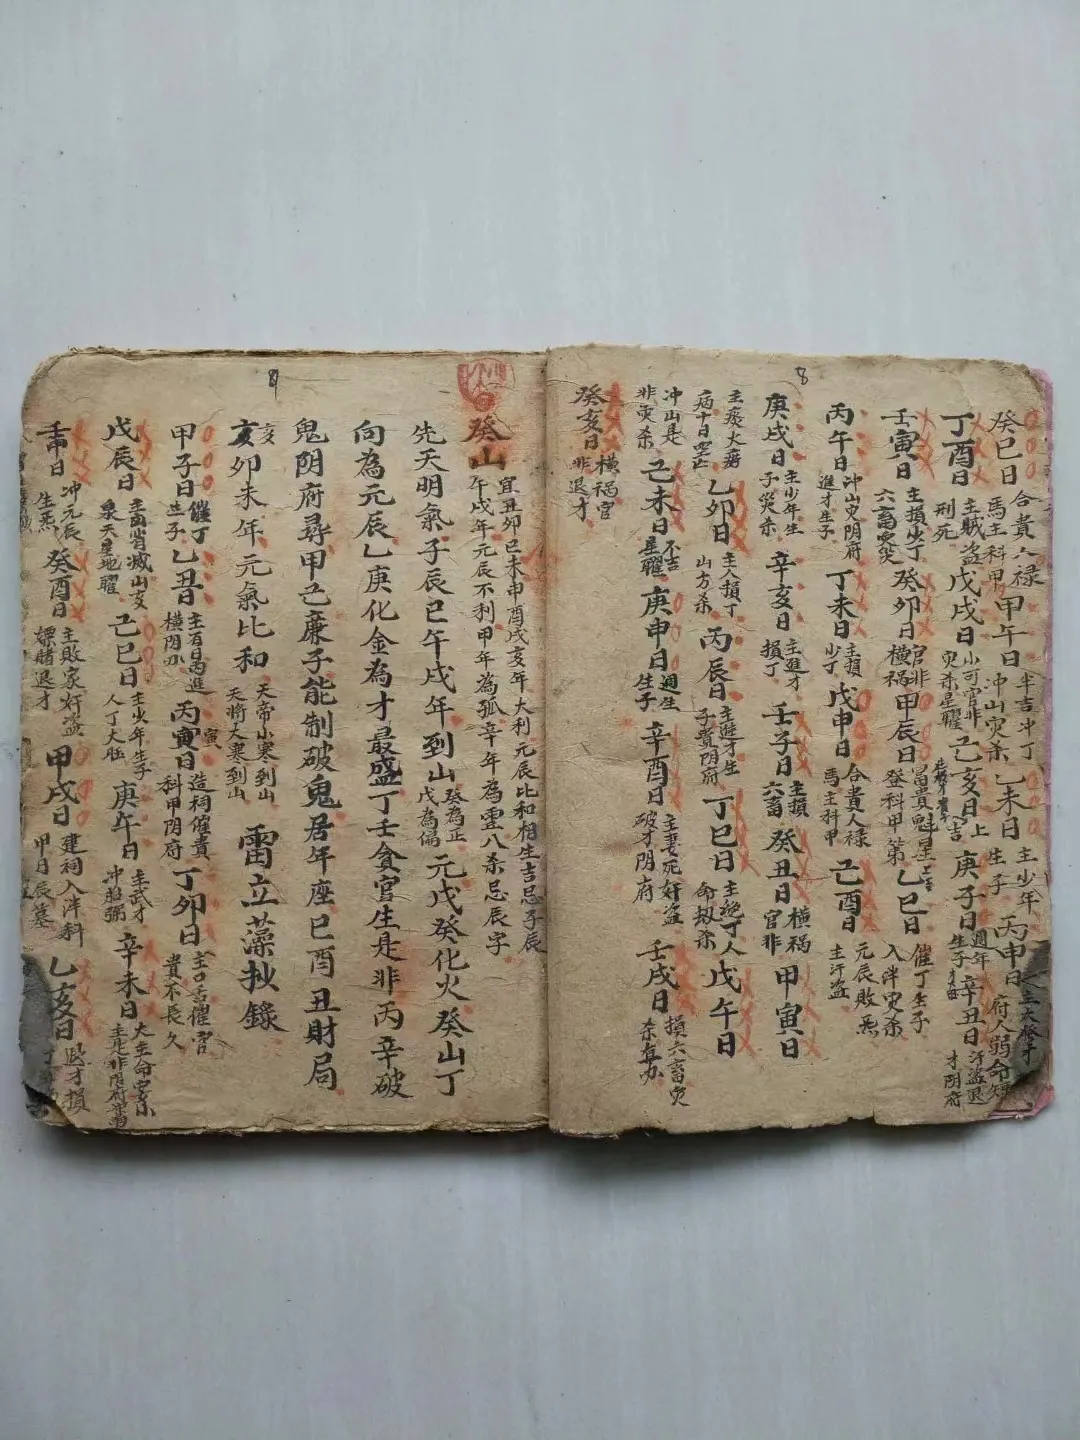 8
癸巳日 合貴人禄馬主科甲 甲午日 半吉冲丁冲山灾杀 乙未日 主少年生子 丙申日
丁酉日 主賊盗刑死 戊戌日 小可官非灾杀星曜 己亥日 上吉 庚子日 週年生子 辛丑日 汗盗退才阴府
壬寅日 主損少丁六畜灾 癸卯日 官非横禍 甲辰日 富貴魁星登科甲第 乙巳日 催丁生子入泮灾杀
丙午日 冲山灾阴府進才生子 丁未日 主損少丁 戊申日 合貴人禄馬主科甲 己酉日 元辰敗炁主汗盗
庚戌日 主少年生子灾杀 辛亥日 主進才損丁 壬子日 主損六畜 癸丑日 横禍官非 甲寅日
主痰火癆病十日空亡 乙卯日 主人損丁山方杀 丙辰日 主進才生子貴阴府 丁巳日 主絶丁人命劫杀 戊午日
冲山是非灾杀 己未日 不吉星曜 庚申日 週年生子 辛酉日 主妻死奸盗破才阴府 壬戌日 損六畜灾杀
癸亥日 横禍官非退才
癸山 宜丑卯巳未申酉戌亥年大利元辰比和相生吉忌子辰午戌年元辰不利甲年為孤辛年為雲八杀忌辰字
先天明氣子辰巳午戌年到山 癸為正戊為偏 元戊癸化火癸山丁
向為元辰乙庚化金為才最盛丁壬貪官生是非丙辛破
鬼阴府尋甲己廉子能制破鬼居年座巳酉丑財局
亥卯未年元氣比和 天帝小寒到山天将大寒到山 雷立藻抄錄
甲子日 催丁生子 乙丑日 丙寅日 造祠催貴科甲阴府 丁卯日 主口舌催官貴不長久
戊辰日 己巳日 主火年生子人丁大旺 庚午日 主武才 辛未日
壬申日 冲元辰生炁 癸酉日 主敗家奸盗嫖賭退才 甲戌日 建祠入泮科甲日辰墓 乙亥日 退才損